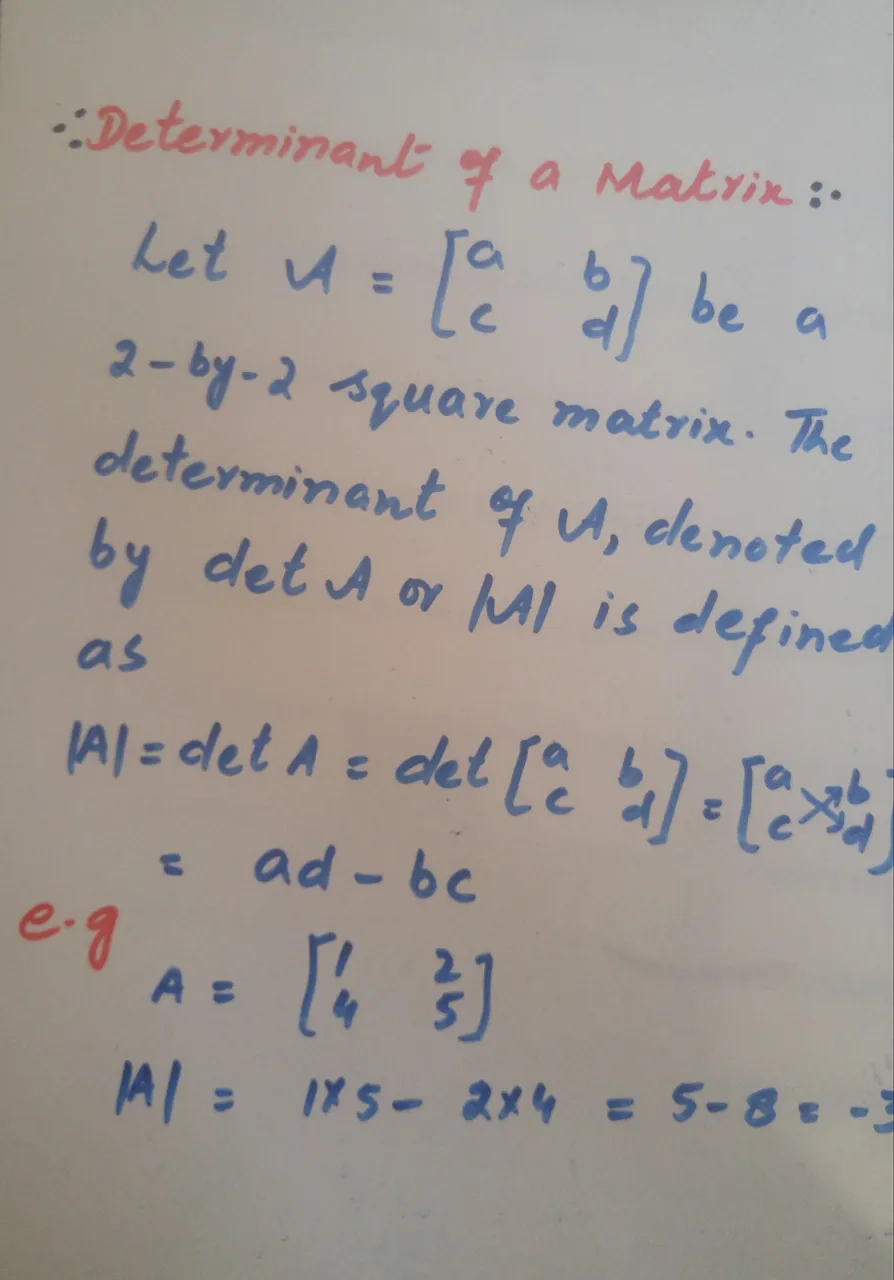 ∴Determinant of a Matrix:·
Let A = [a b
c d] be a
2-by-2 square matrix. The
determinant of A, denoted
by det A or |A| is defined
as
|A| = det A = det [a b
c d] = [a b
c d]
= ad - bc
e.g
A = [1 2
4 5]
|A| = 1×5 - 2×4 = 5-8 = -3